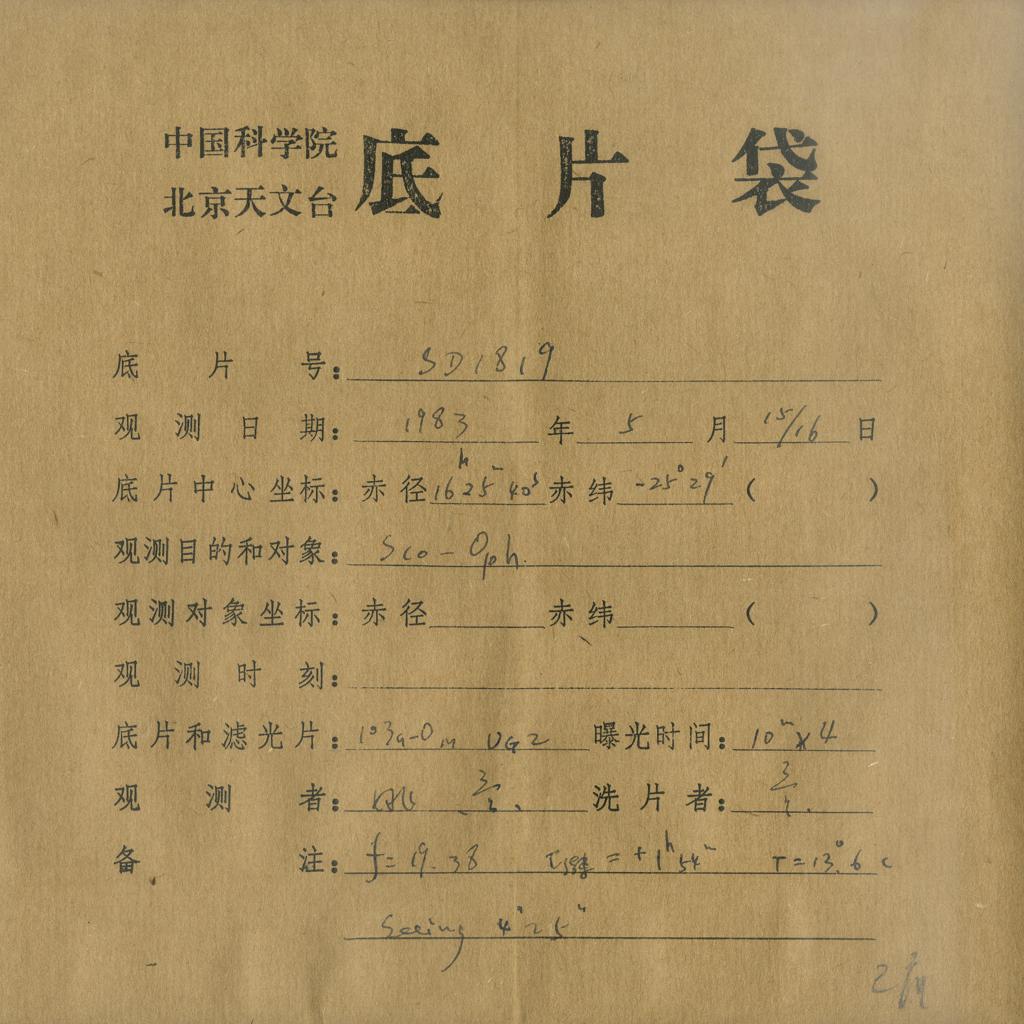 中国科学院
北京天文台 底片袋
底片号: SD1819
观测日期: 1983 年 5 月 15/16 日
底片中心坐标: 赤径 16h25m40s 赤纬 -25°29′ ( )
观测目的和对象: Sco-Oph.
观测对象坐标: 赤径 赤纬 ( )
观测时刻:
底片和滤光片: 103a-O UG2 曝光时间: 10m×4
观测者: 洗片者:
备注: f=19.38 = +1h54m T=13°.6 c
Seeing 4"~5"